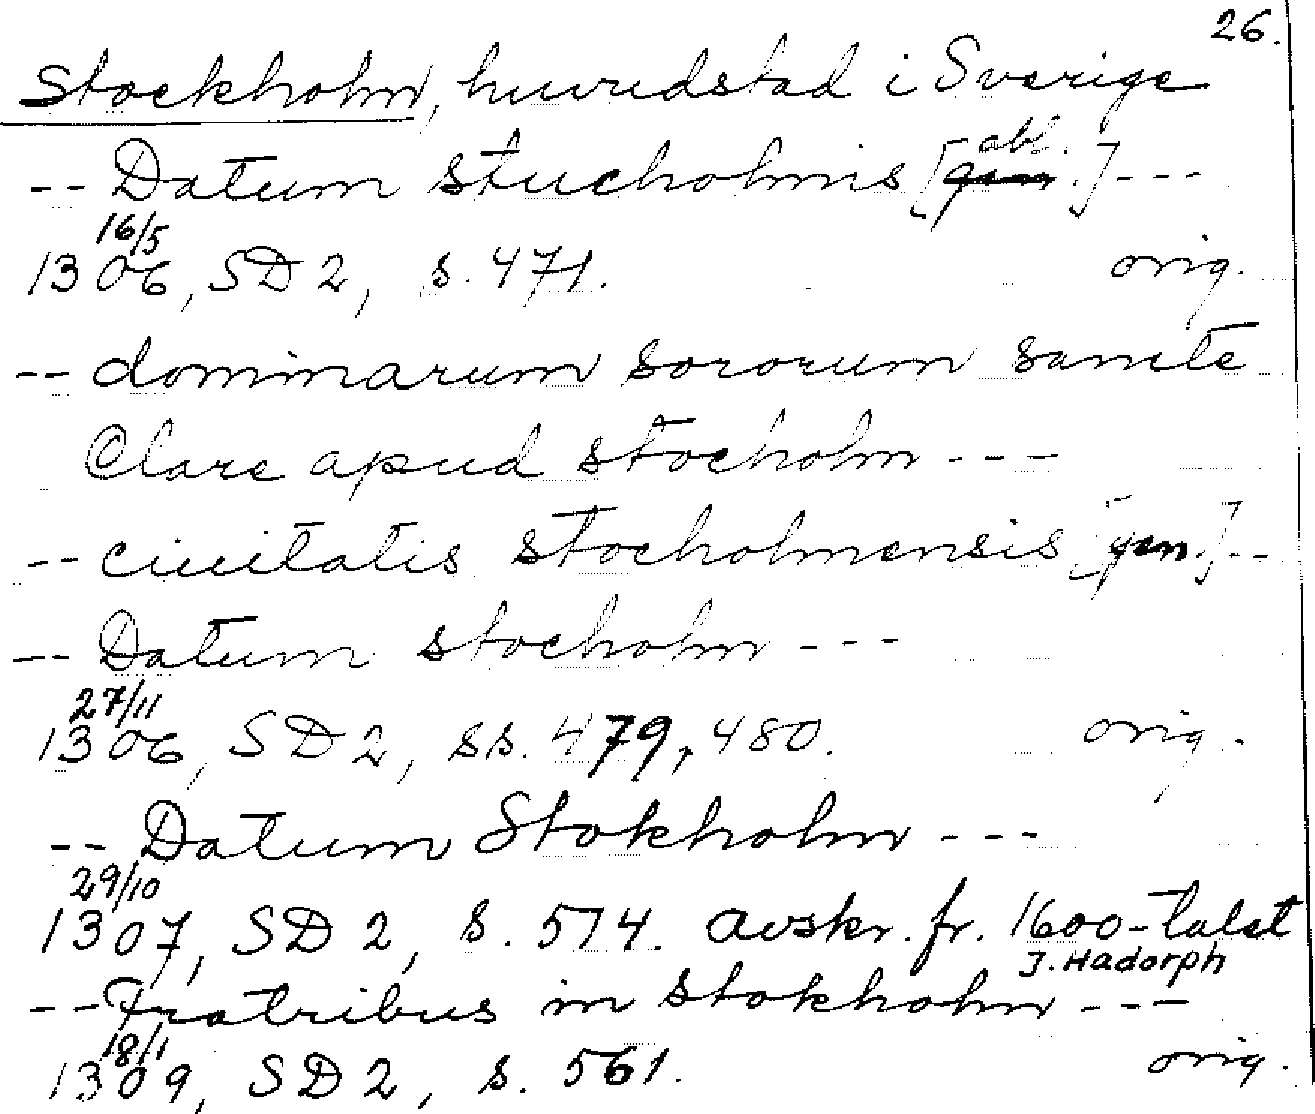 26.
Stockholm, huvudstad i Sverige
-- Datum stucholmis [gen abl.] ---
16/5
1306, SD 2, s. 471. orig.
-- dominarum sororum sancte
Clare apud stocholm ---
-- ciuitatis stocholmensis [gen.] --
-- Datum stocholm ---
27/11
1306, SD 2, ss. 479, 480. orig.
-- Datum Stokholm ---
29/10
1307, SD 2, s. 514. avskr. fr. 1600-talet
J. Hadorph
-- Fratribus in stokholm ---
18/1
1309, SD 2, s. 561. orig.